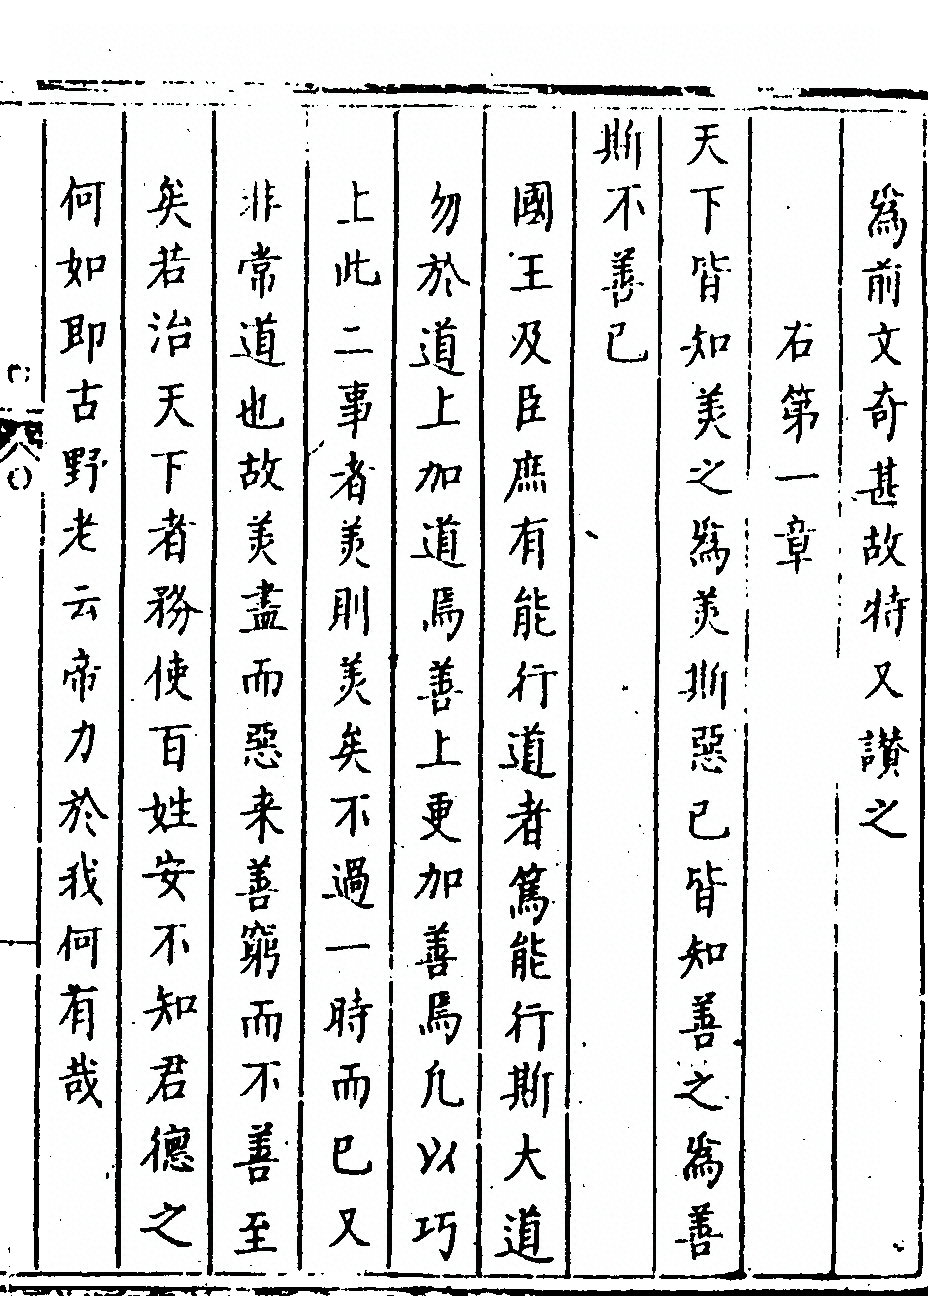 為前文奇甚故特又讃之
右第一章
天下皆知美之為美斯惡已皆知善之為善
斯不善已
國王及臣庶有能行道者篤能行斯大道
勿於道上加道焉善上更加善焉凢以巧
上此二事者美則美矣不過一時而已又
非常道也故美盡而惡来善窮而不善至
矣若治天下者務使百姓安不知君德之
何如即古野老云帝力於我何有哉